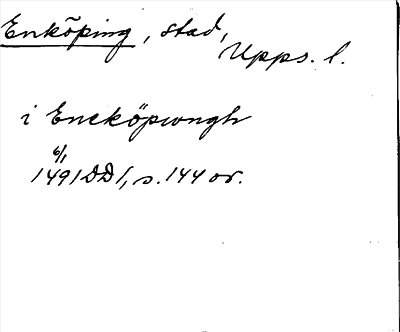 Enköping, stad,
Upps. l.
i Encköpungh
6/1
1491 DD 1, s. 144 or.